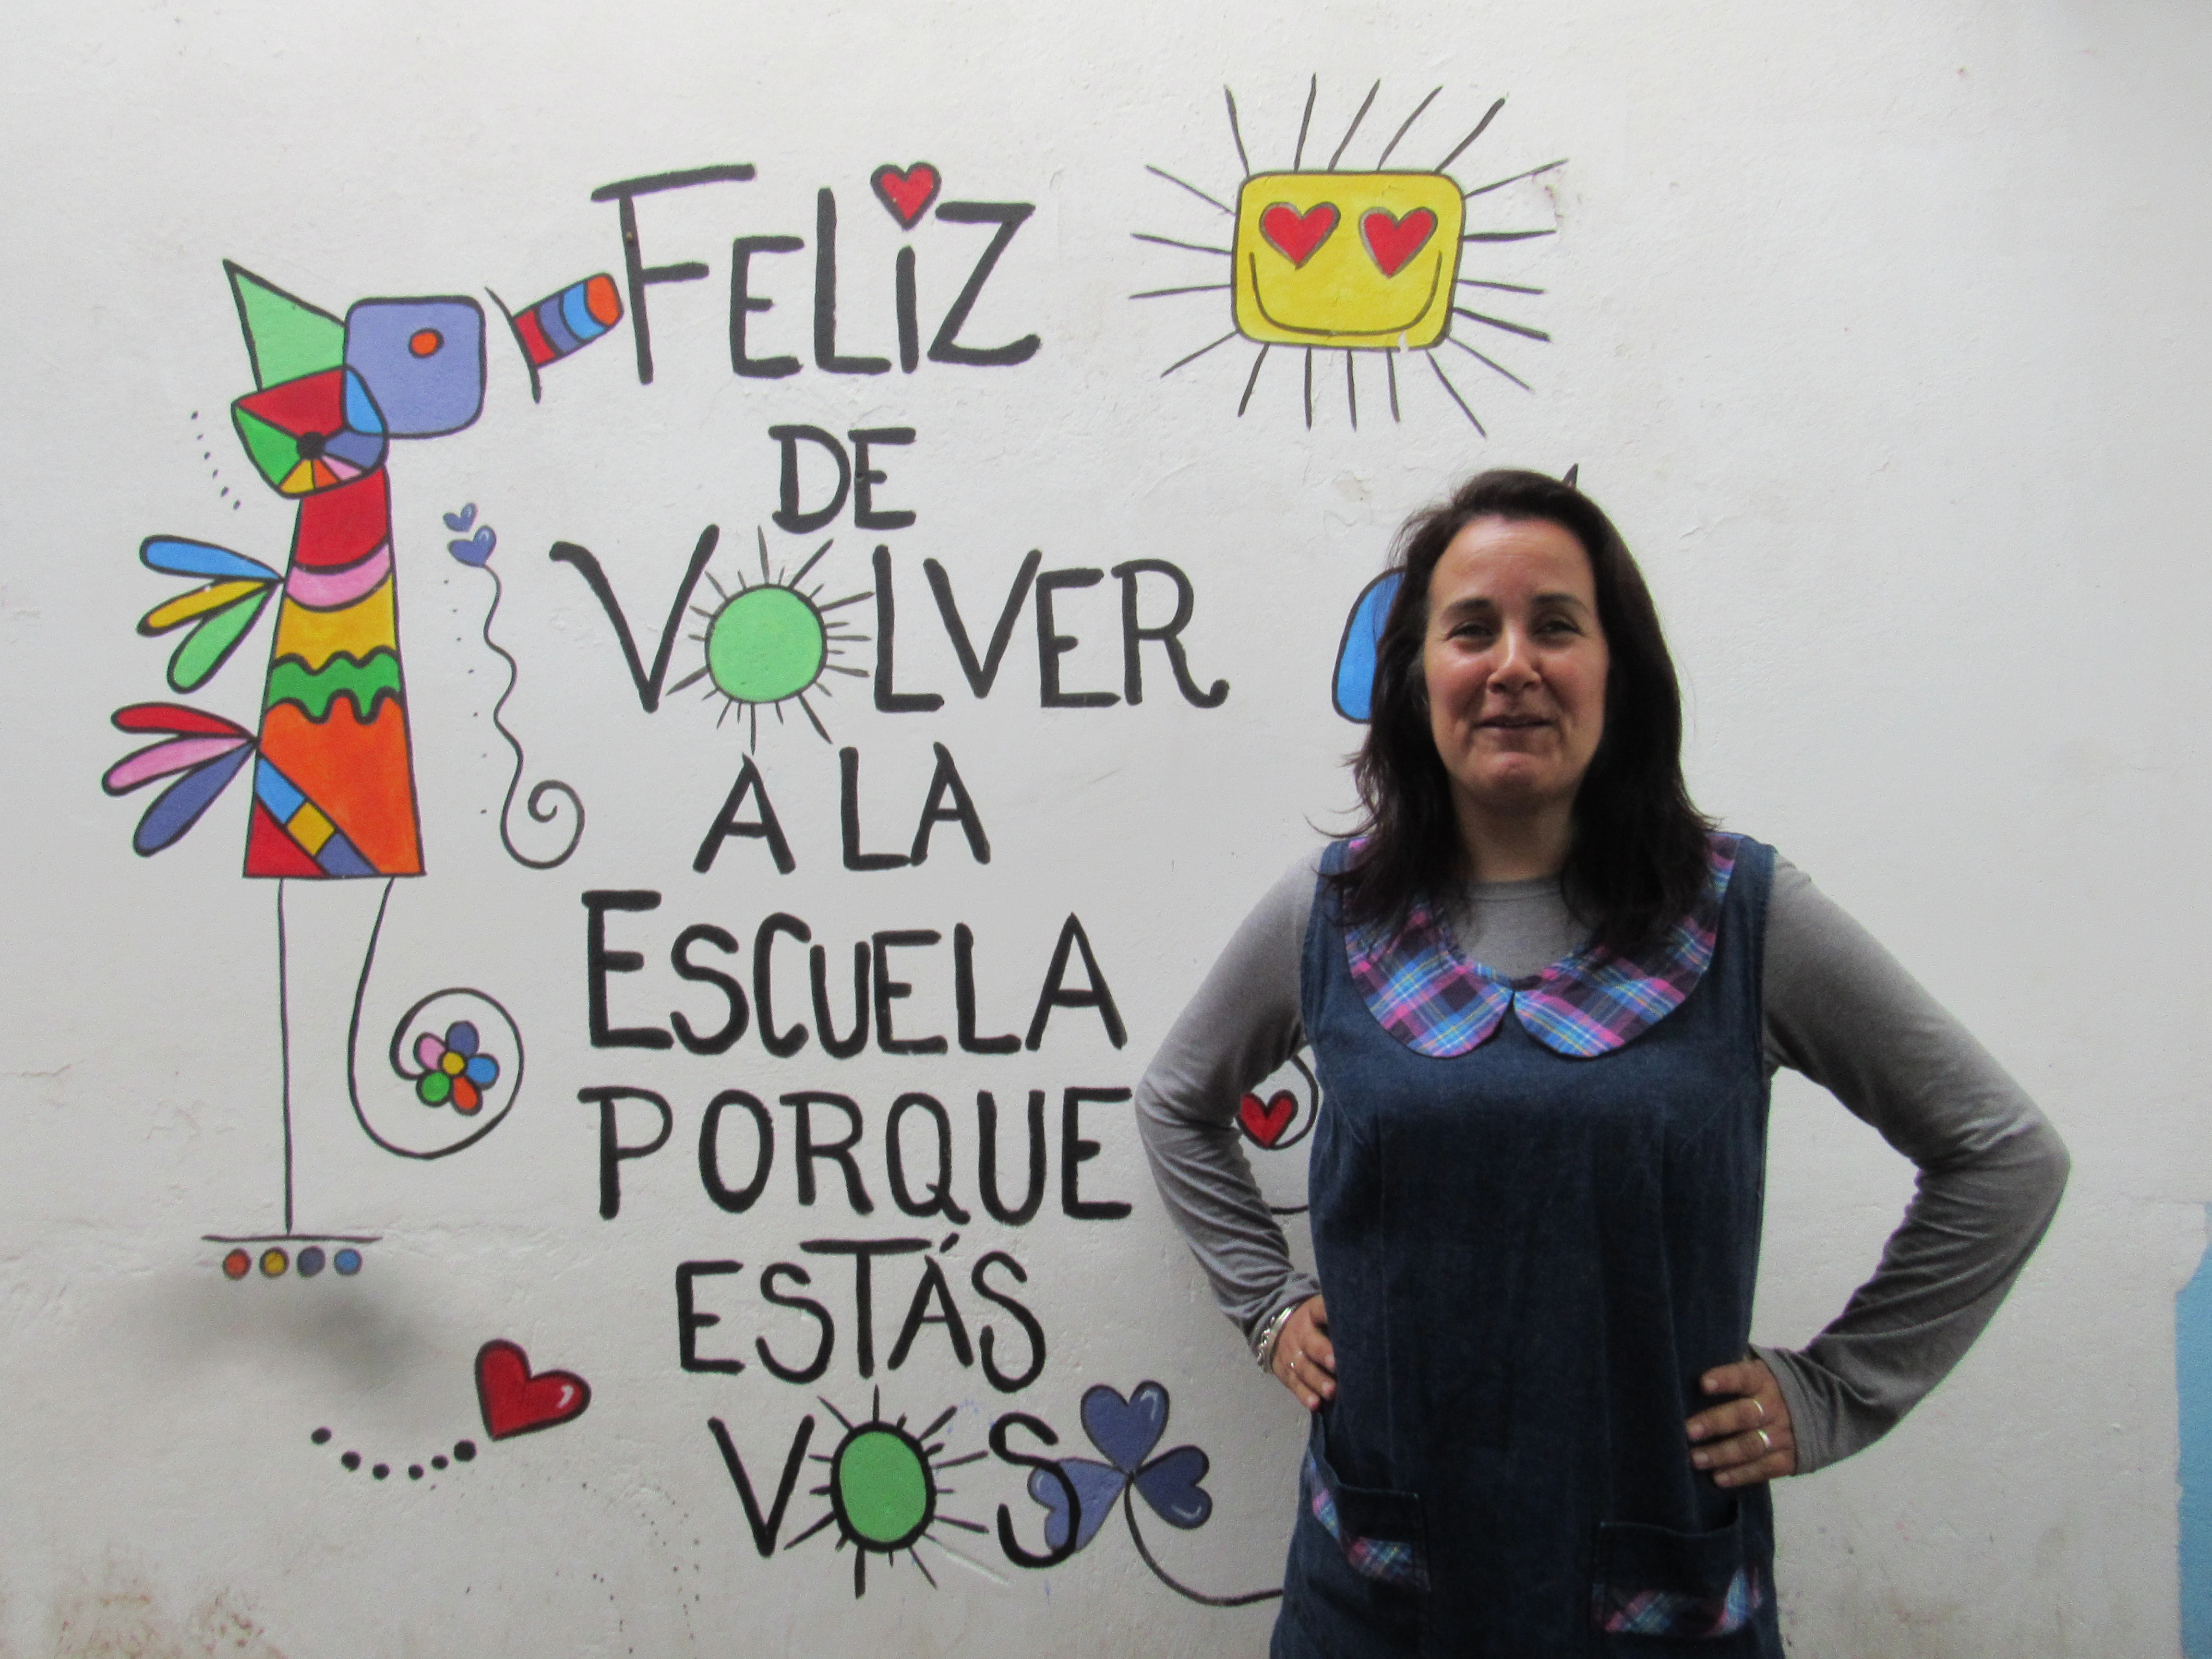 FELIZ
DE
VOLVER
A LA
ESCUELA
PORQUE
ESTÁS
VOS